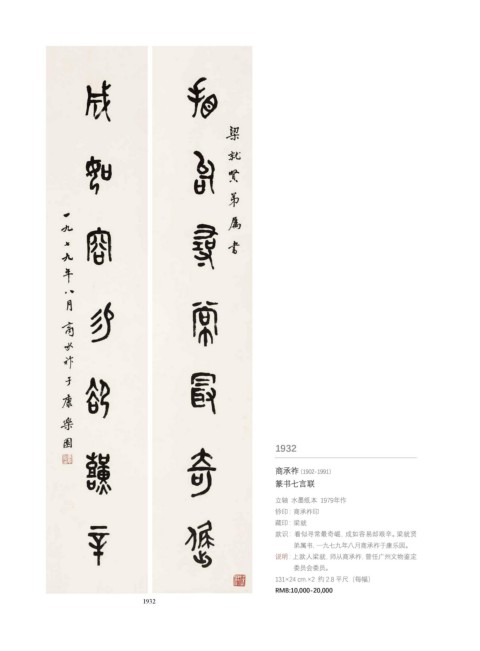 梁就賢弟屬書
看似尋常最奇崛
成如容易卻艱辛
一九七九年八月商承祚于康樂園
1932
1932
商承祚 (1902-1991)
篆书七言联
立轴 水墨纸本 1979年作
钤印：商承祚印
藏印：梁就
款识：看似寻常最奇崛，成如容易却艰辛。梁就贤
弟属书，一九七九年八月商承祚于康乐园。
说明：上款人梁就，师从商承祚，曾任广州文物鉴定
委员会委员。
131×24 cm.×2 约 2.8 平尺（每幅）
RMB:10,000-20,000